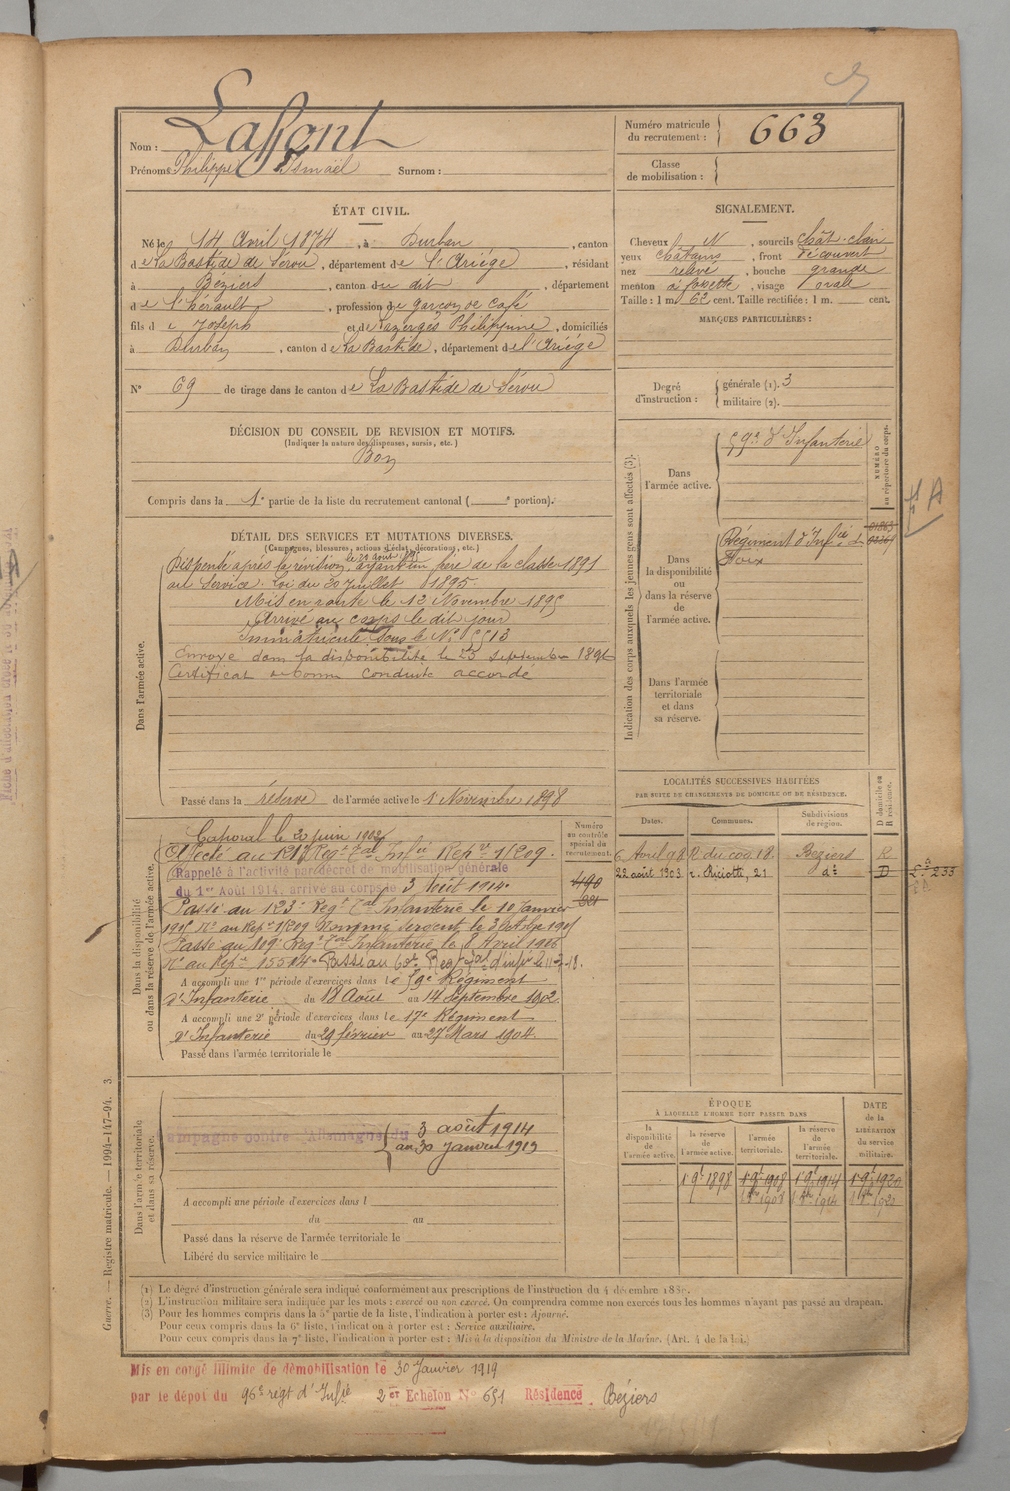 Nom : Laffont
Prénoms : Philippe Ismaël Surnom :
Numéro matricule du recrutement : 663
Classe de mobilisation :
ÉTAT CIVIL.
Né le 14 Avril 1874, à Durban, canton
de La Bastide de Sérou, département de l'Ariège, résidant
à Béziers, canton du dit, département
de l'hérault, profession de garçon de café
fils de Joseph et de Lazergés Philippine, domiciliés
à Durban, canton de La Bastide, département de l'Ariége
N° 69 de tirage dans le canton de La Bastide de Sérou
SIGNALEMENT.
Cheveux N, sourcils chât. clair
yeux châtains, front découvert
nez relevé, bouche grande
menton à fossette, visage ovale
Taille : 1 m. 62 cent. Taille rectifiée : 1 m. cent.
MARQUES PARTICULIÈRES :
Degré d'instruction : générale (1). 3
militaire (2).
DÉCISION DU CONSEIL DE REVISION ET MOTIFS.
(Indiquer la nature des dispenses, sursis, etc.)
Bon
Compris dans la 1e partie de la liste du recrutement cantonal ( e portion).
DÉTAIL DES SERVICES ET MUTATIONS DIVERSES.
(Campagnes, blessures, actions d'éclat, décorations, etc.)
Dans l'armée active.
Dispensé après la révision, ayant un frère de la classe 1891
au Service. Loi du 20 Juillet 1895.
Mis en route le 12 Novembre 1895
Arrivé au corps le dit jour
Immatriculé sous le N° 5513
Envoyé dans la disponibilité le 23 septembre 1896
Certificat de bonne conduite accordé
Passé dans la réserve de l'armée active le 1 Novembre 1898
Indication des corps auxquels les jeunes gens sont affectés (3).
NUMÉRO au répertoire du corps.
Dans l'armée active.
59e d'Infanterie
Dans la disponibilité ou dans la réserve de l'armée active.
Régiment d'Infie de
Foix
Dans l'armée territoriale et dans sa réserve.
LOCALITÉS SUCCESSIVES HABITÉES
PAR SUITE DE CHANGEMENTS DE DOMICILE OU DE RÉSIDENCE.
Dates. Communes. Subdivisions de région. D domicile ou R résidence.
6 Avril 98 R. du coq 18. Beziers R
22 août 1903 r. Riciotti, 21 do D
233
Dans la disponibilité ou dans la réserve de l'armée active.
Numéro au contrôle spécial du recrutement.
Caporal le 20 juin 1902
Affecté au 121e Regt Tal Infie Repre 11209.
Rappelé à l'activité par décret de mobilisation générale
du 1er Août 1914, arrivé au corps le 3 Août 1914.
Passé au 123e Regt Tal Infanterie le 10 Janvier
Passé au 109e Regt Tal Infanterie le 8 Avril 1906
A accompli une 1re période d'exercices dans le 59e Régiment
d'Infanterie du 18 Août au 14 Septembre 1902.
A accompli une 2e période d'exercices dans le 17e Régiment
d'Infanterie du 29 février au 27 Mars 1904.
Passé dans l'armée territoriale le
Dans l'armée territoriale et dans sa réserve.
Campagne contre l'Allemagne du 3 août 1914
au 30 Janvier 1919
A accompli une période d'exercices dans l
du au
Passé dans la réserve de l'armée territoriale le
Libéré du service militaire le
ÉPOQUE
À LAQUELLE L'HOMME DOIT PASSER DANS
la disponibilité de l'armée active. la réserve de l'armée active. l'armée territoriale. la réserve de l'armée territoriale.
DATE de la LIBÉRATION du service militaire.
1 9e 1898 1 9e 1908 1 9e 1914 1 9e 1920
Guerre. — Registre matricule. — 1994-147-94. 3.
(1) Le degré d'instruction générale sera indiqué conformément aux prescriptions de l'instruction du 4 décembre 1889.
(2) L'instruction militaire sera indiquée par les mots : exercé ou non exercé. On comprendra comme non exercés tous les hommes n'ayant pas passé au drapeau.
(3) Pour les hommes compris dans la 5e partie de la liste, l'indication à porter est : Ajourné.
Pour ceux compris dans la 6e liste, l'indication à porter est : Service auxiliaire.
Pour ceux compris dans la 7e liste, l'indication à porter est : Mis à la disposition du Ministre de la Marine. (Art. 4 de la loi.)
Mis en congé illimité de démobilisation le 30 Janvier 1919
par le dépot du 96e regt d'Infie 2er Echelon N° 651 Résidence Béziers